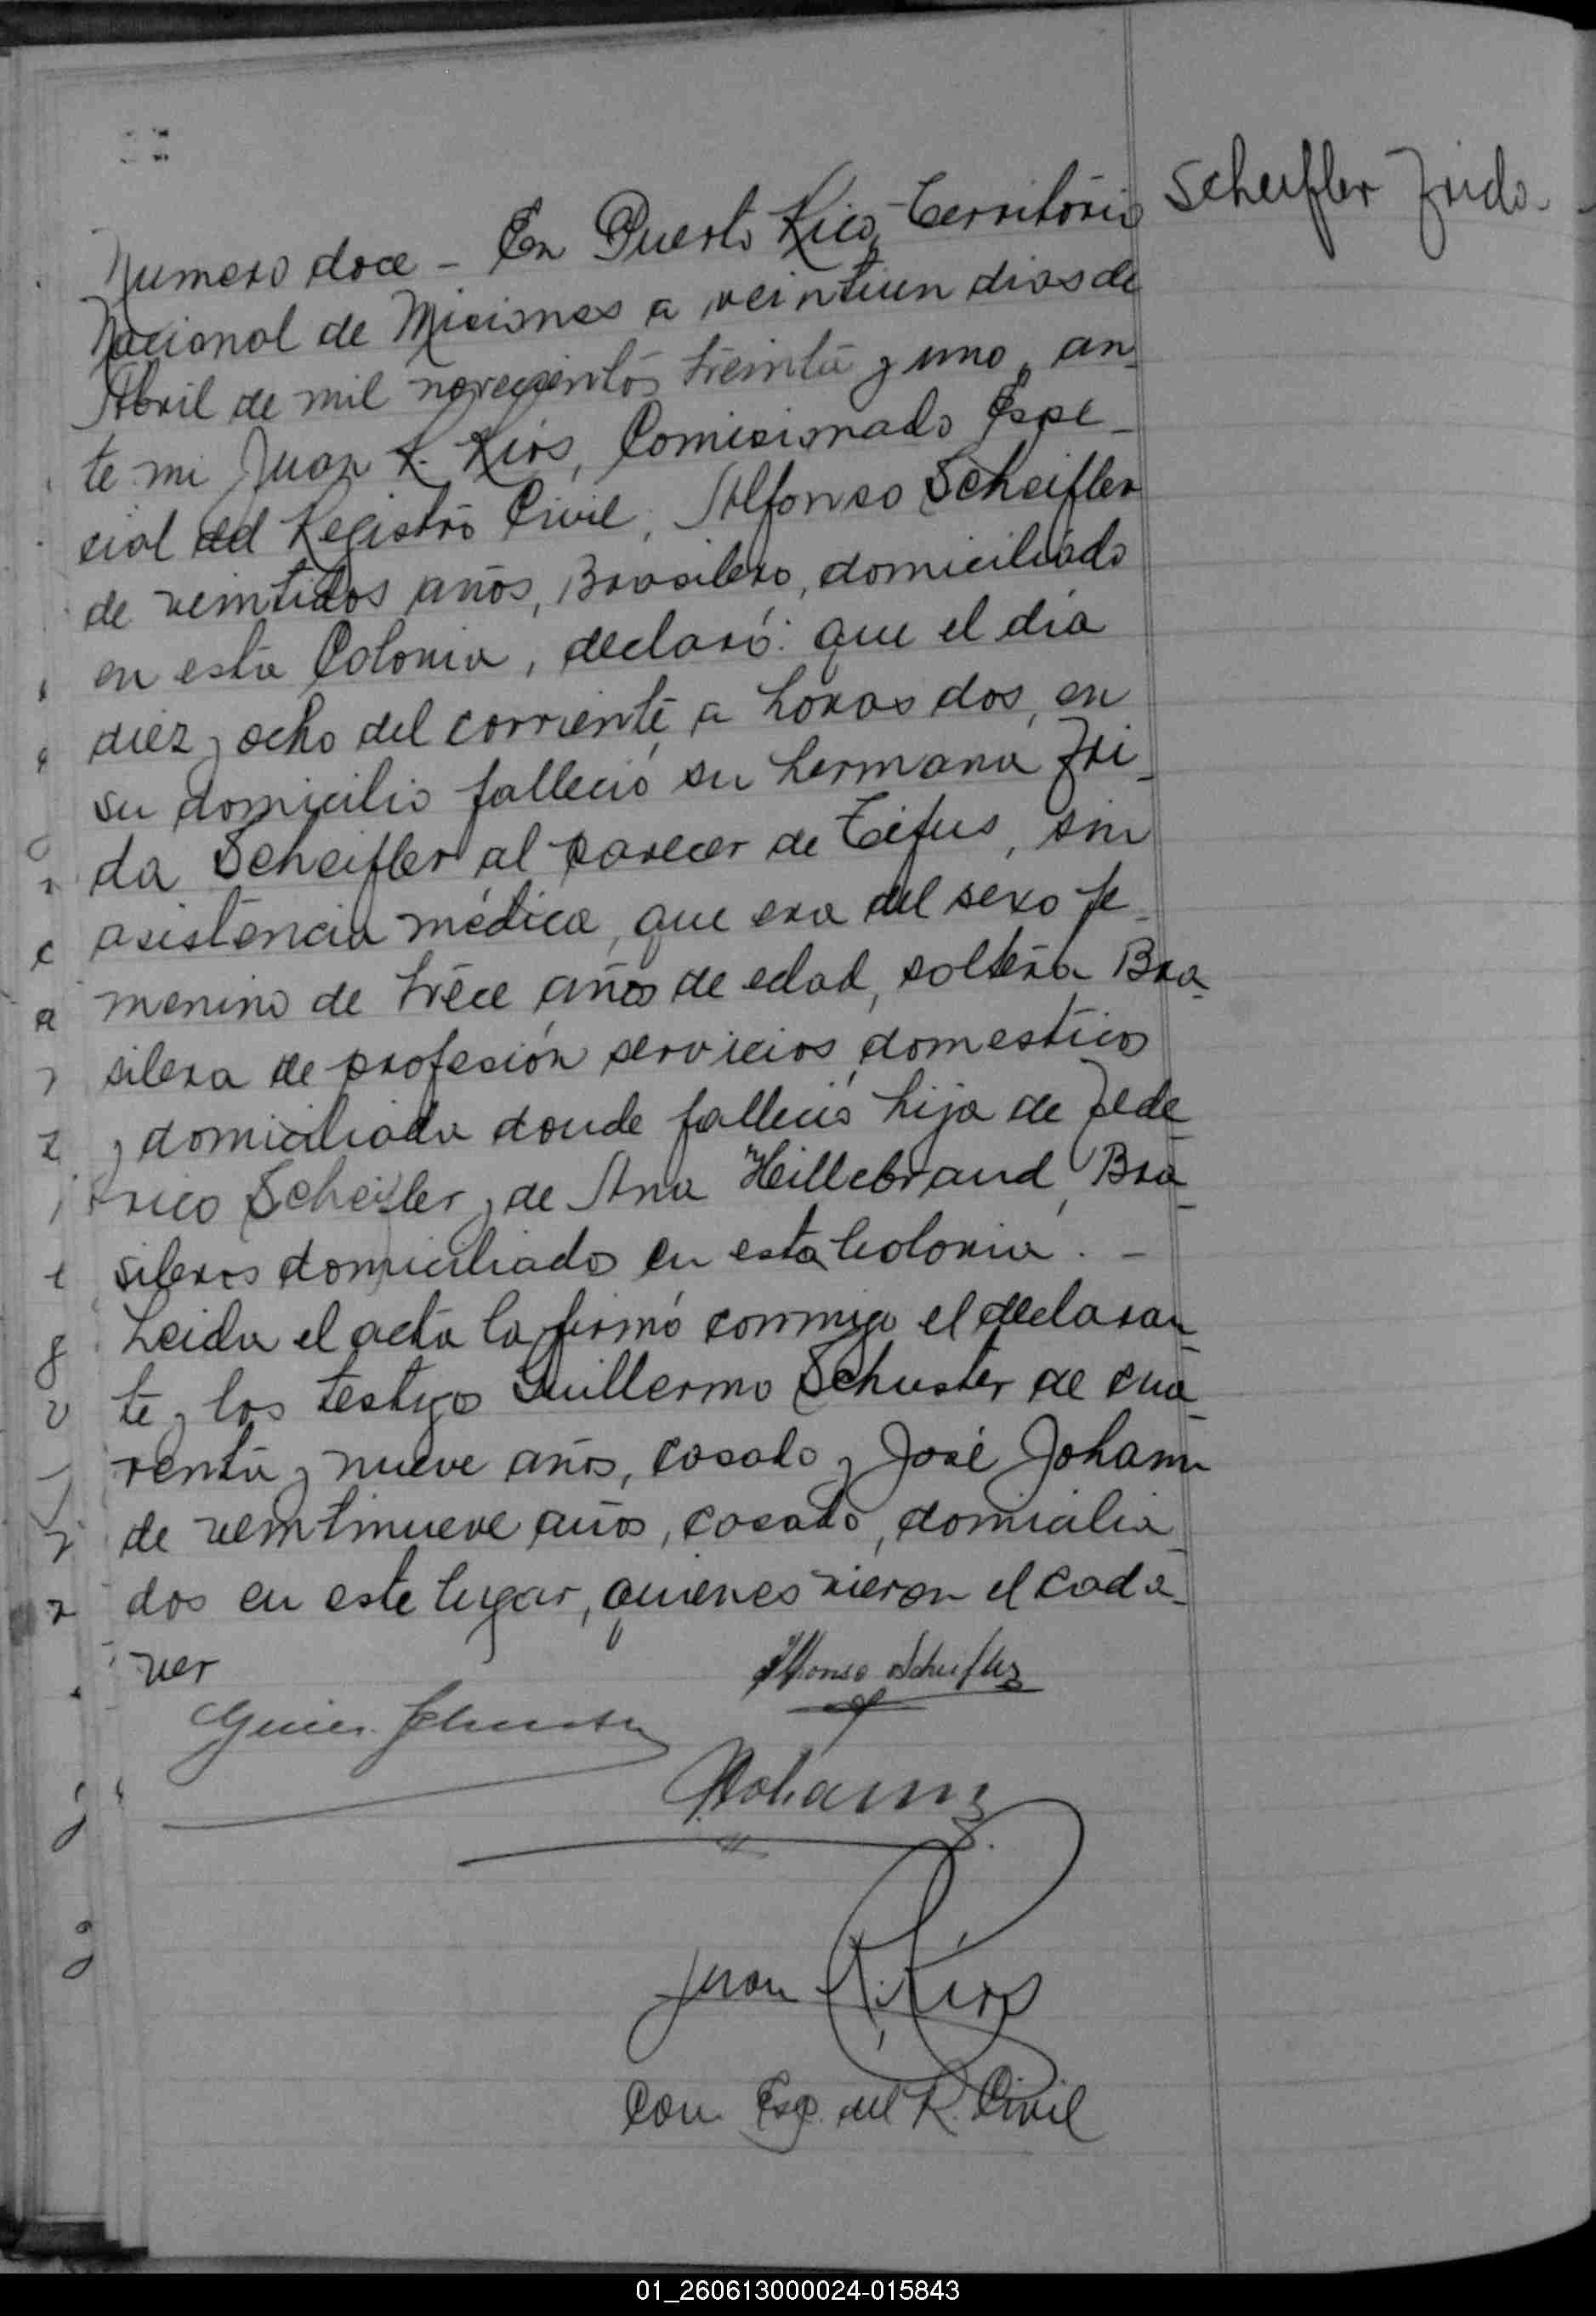 Scheifler Frida.
Numero doce - En Puerto Rico, Territorio
Nacional de Misiones a veintiun dias de
Abril de mil novecientos treinta y uno, an-
te mi Juan R. Rios, Comisionado Espe-
cial del Registro Civil, Alfonso Scheifler
de veintidos años, Brasilero, domiciliado
en esta Colonia, declaró: que el día
diez y ocho del corriente, a horas dos, en
su domicilio falleció su hermana Fri-
da Scheifler al parecer de Tifus, sin
asistencia médica, que era del sexo fe-
menino de trece años de edad, soltera Bra-
silera de profesión servicios domesticos
y domiciliada donde falleció hija de Fede-
rico Scheifler y de Ana Hillebrand, Bra-
sileros domiciliados en esta Colonia. -
Leida el acta la firmó conmigo el declaran-
te y los testigos Guillermo Schuster de cua-
renta y nueve años, casado y José Johann
de veintinueve años, casado, domicilia-
dos en este lugar, quienes vieron el cada-
ver
Alfonso Scheifler
Johann
Juan R. Rios
Com. Esp. del R. Civil
01_260613000024-015843